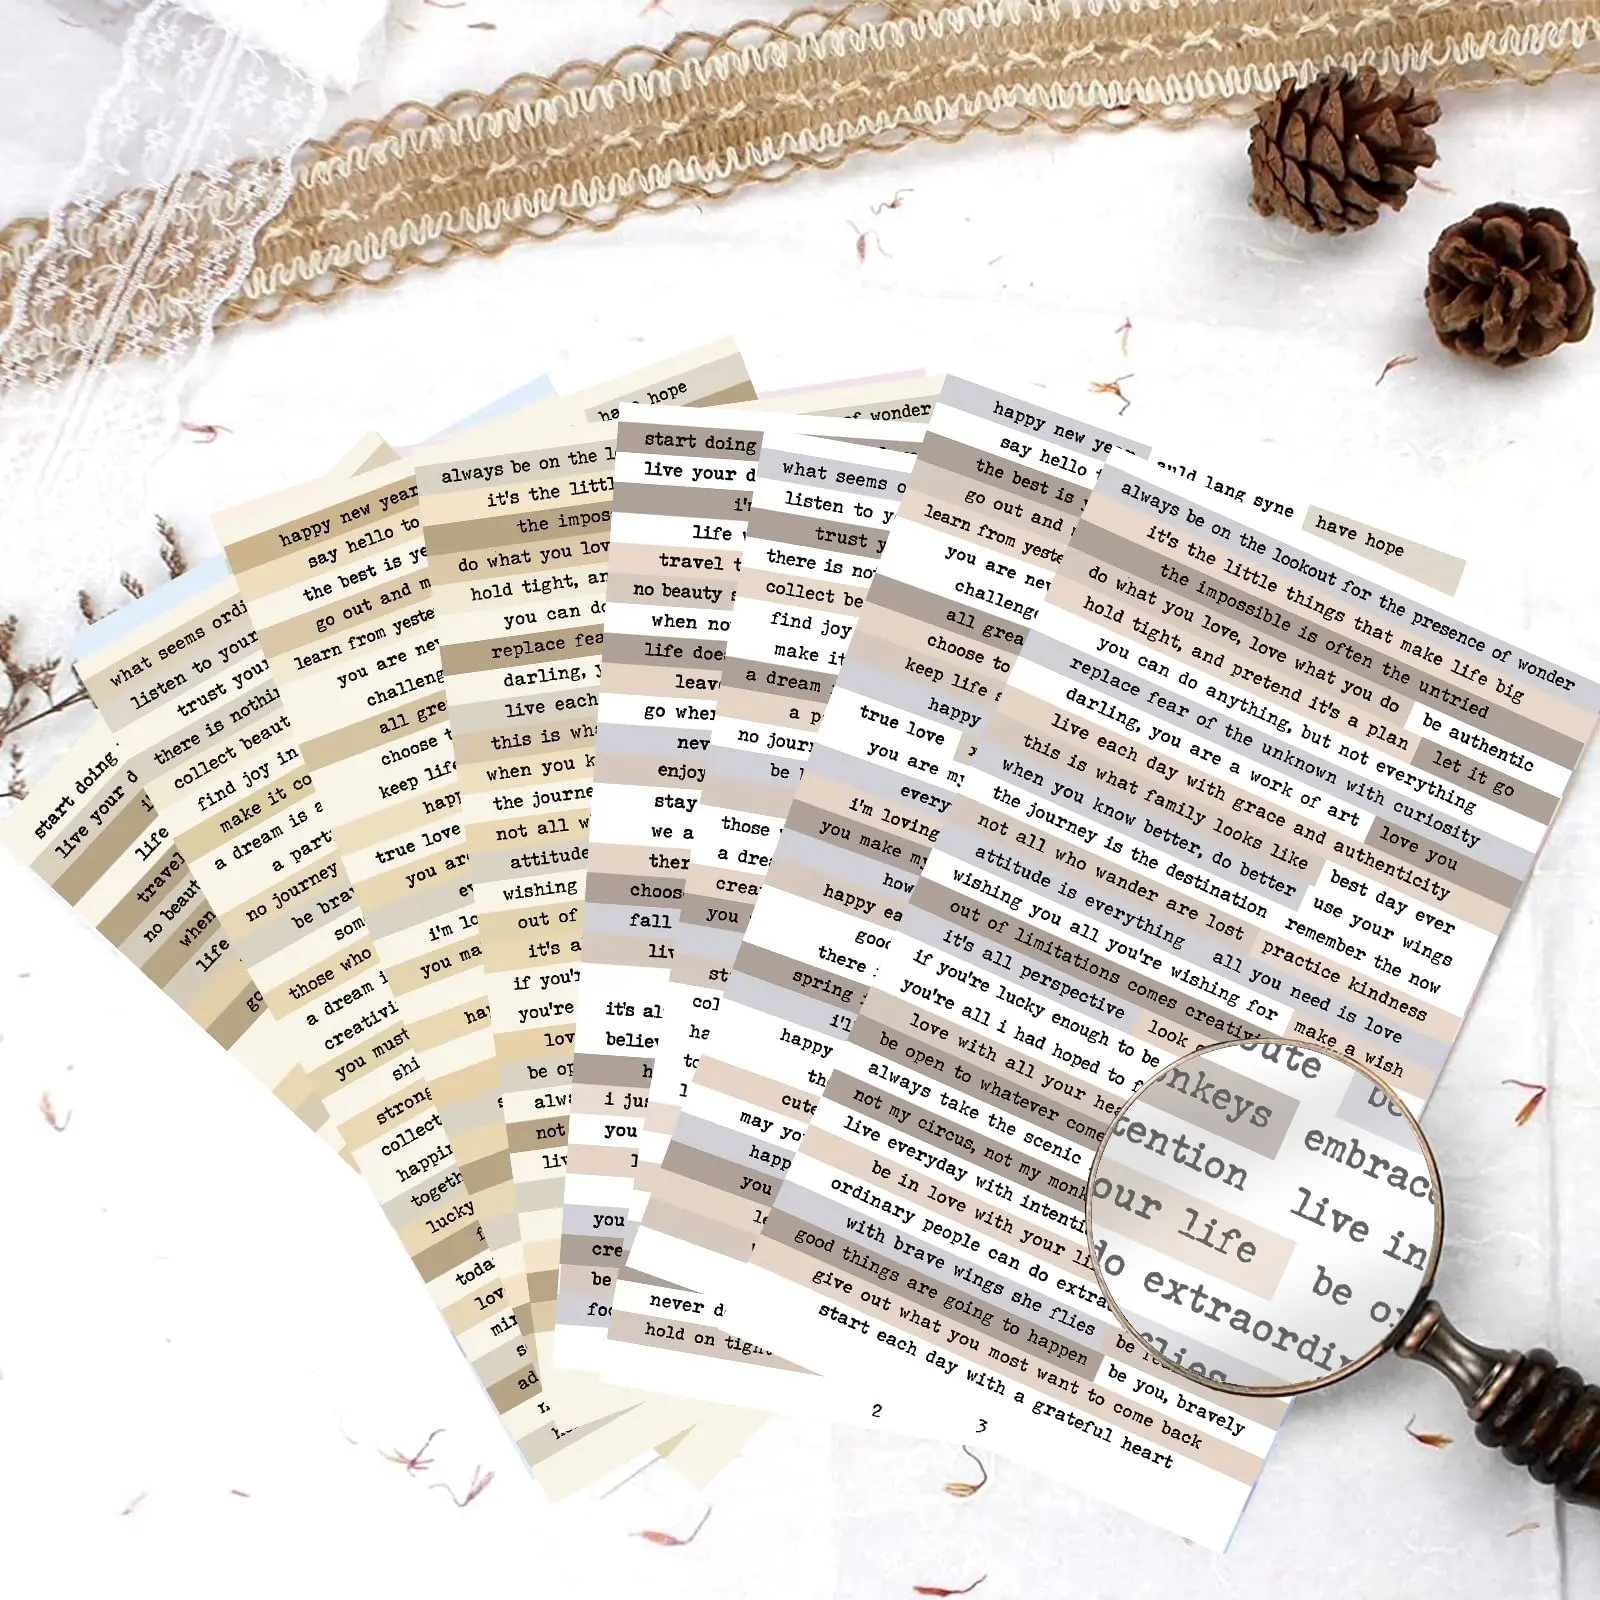 what seems ordi
listen to your
trust your
there is nothi
collect beaut
find joy in
make it co
a dream is a
a part
no journey
be bra
som
those who
a dream i
creativi
you must
shi
strong
collect
happi
togeth
lucky
toda
lov
start doing
live your d
life
travel
no beaut
when
life
go
happy new year
say hello to
the best is ye
go out and m
learn from yeste
you are nev
challeng
all gre
choose t
keep life
happ
true love
you ar
i'm lo
you ma
have hope
always be on the l
it's the littl
the impos
do what you lov
hold tight, an
you can do
replace fea
darling, y
live each
this is wha
when you k
the journe
not all w
attitude
wishing
out of
it's a
if you'r
you're
lov
be op
alwa
not
liv
of wonder
start doing
live your d
i'm
life
travel t
no beauty s
when no
life doe
leav
go wher
nev
enjoy
stay
we a
ther
choos
fall
liv
it's al
believ
h
i jus
you
you
cre
be
foc
what seems o
listen to y
trust y
there is no
collect be
find joy
make it
a dream
a p
no jour
be
those
a dre
crea
you
st
col
ha
to
never d
hold on tight
2
happy new year
auld lang syne
have hope
say hello
the best is y
go out and
learn from yeste
you are nev
challeng
all grea
choose to
keep life s
happy
true love
you are my
every
i'm loving
you make my
how
happy ea
good
there
spring
i'll
happy
th
cute
may yo
happ
you
le
always be on the lookout for the presence of wonder
it's the little things that make life big
the impossible is often the untried
do what you love, love what you do be authentic
hold tight, and pretend it's a plan let it go
you can do anything, but not everything
replace fear of the unknown with curiosity
darling, you are a work of art love you
live each day with grace and authenticity
this is what family looks like best day ever
when you know better, do better use your wings
the journey is the destination remember the now
not all who wander are lost practice kindness
attitude is everything all you need is love
wishing you all you're wishing for make a wish
out of limitations comes creativi
it's all perspective look
if you're lucky enough to be
you're all i had hoped to f
love with all your hea
be open to whatever come
always take the scenic
not my circus, not my monk
live everyday with intenti
be in love with your li
ordinary people can do extra
with brave wings she flies
good things are going to happen be you, bravely
give out what you most want to come back
start each day with a grateful heart
3
oute
onkeys be
tention embrace
our life live in
do extraordi be o
flies